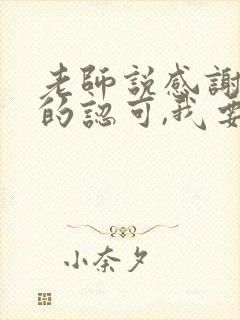 老師說感謝
的認可,我要
小奈夕